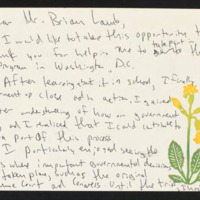 ear Mr. Brian Lamb,
I would like to take this opportunity to
nk you for helping me to take part
program in Washington D.C.
After learning about it in school, I finally
ment up close and in action, I gained
er understanding of how our government
s and I realized that I could contribute to
a part of this process
I particularly enjoyed seeing the
where important governmental decisions
taken place, such as the original
me Court and Congress Until the trip,